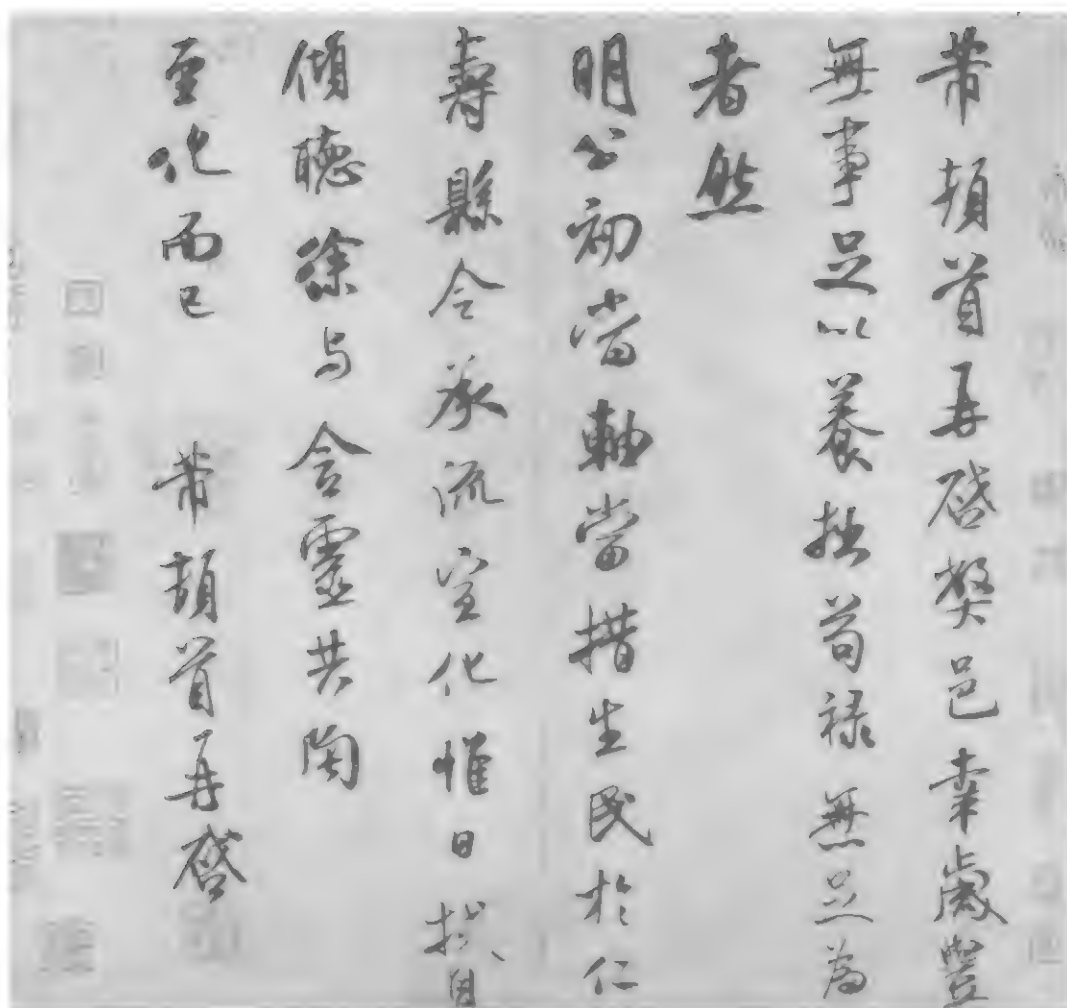 芾頓首再啓弊邑幸歲豐
無事足以養拙苟禄無足為
者然
明公初當軸當措生民於仁
壽縣令承流宣化惟日拭目
傾聽徐与含靈共陶
至化而已 芾頓首再啓